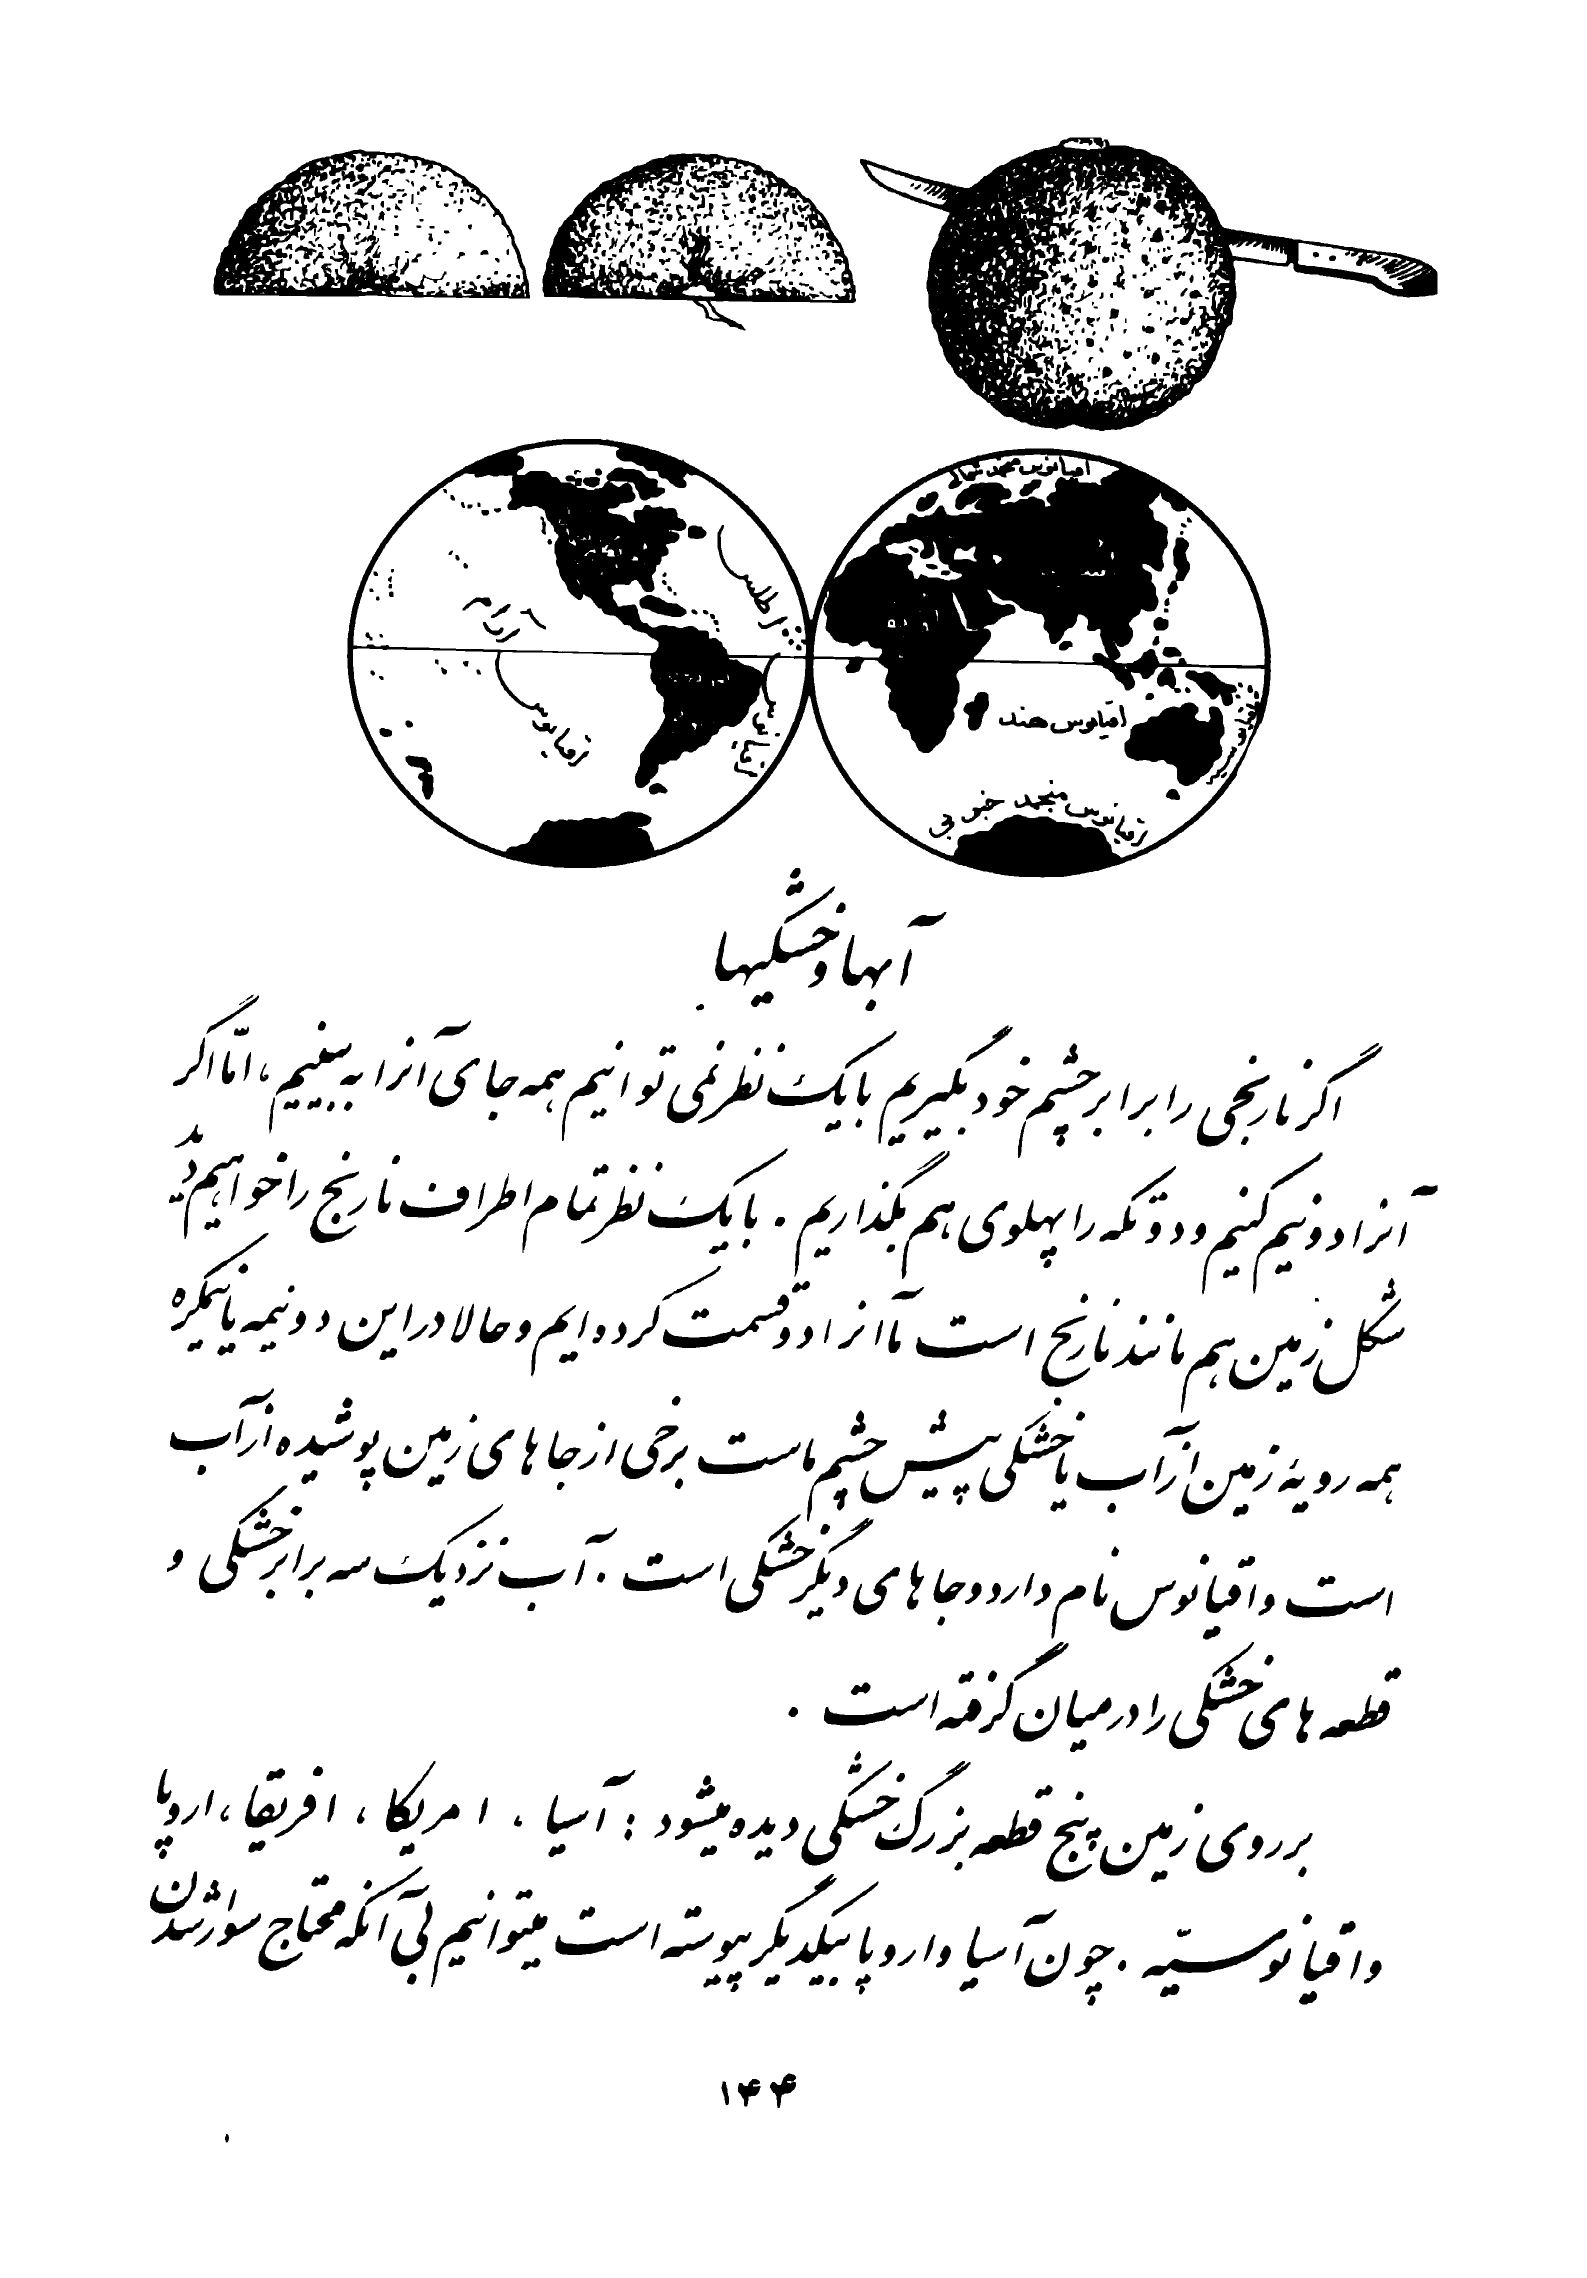 اقیانوس منجمد شمالی
اطلس
آرام
اقیانوس
اقیانوس
اقیانوس هند
اقیانوسیه
اقیانوس منجمد جنوبی
آبها و خشکیها
اگر نارنجی را برابر چشم خود بگیریم با یک نظر نمی توانیم همه جای آنرا به ببینیم، امّا اگر
آنرا دو نیم کنیم و دو تکه را پهلوی هم بگذاریم . با یک نظر تمام اطراف نارنج را خواهیم دید
شکل زمین هم مانند نارنج است ما آنرا دو قسمت کرده ایم و حالا در این دو نیمه یا نیمکره
همه رویهٔ زمین از آب یا خشکی پیش چشم ماست برخی از جاهای زمین پوشیده از آب
است و اقیانوس نام دارد و جاهای دیگر خشکی است . آب نزدیک سه برابر خشکی و
قطعه های خشکی را در میان گرفته است .
بر روی زمین پنج قطعه بزرگ خشکی دیده میشود : آسیا ، امریکا ، افریقا ، اروپا
و اقیانوسیّه . چون آسیا و اروپا بیکدیگر پیوسته است میتوانیم بی آنکه محتاج سوار شدن
۱۴۴